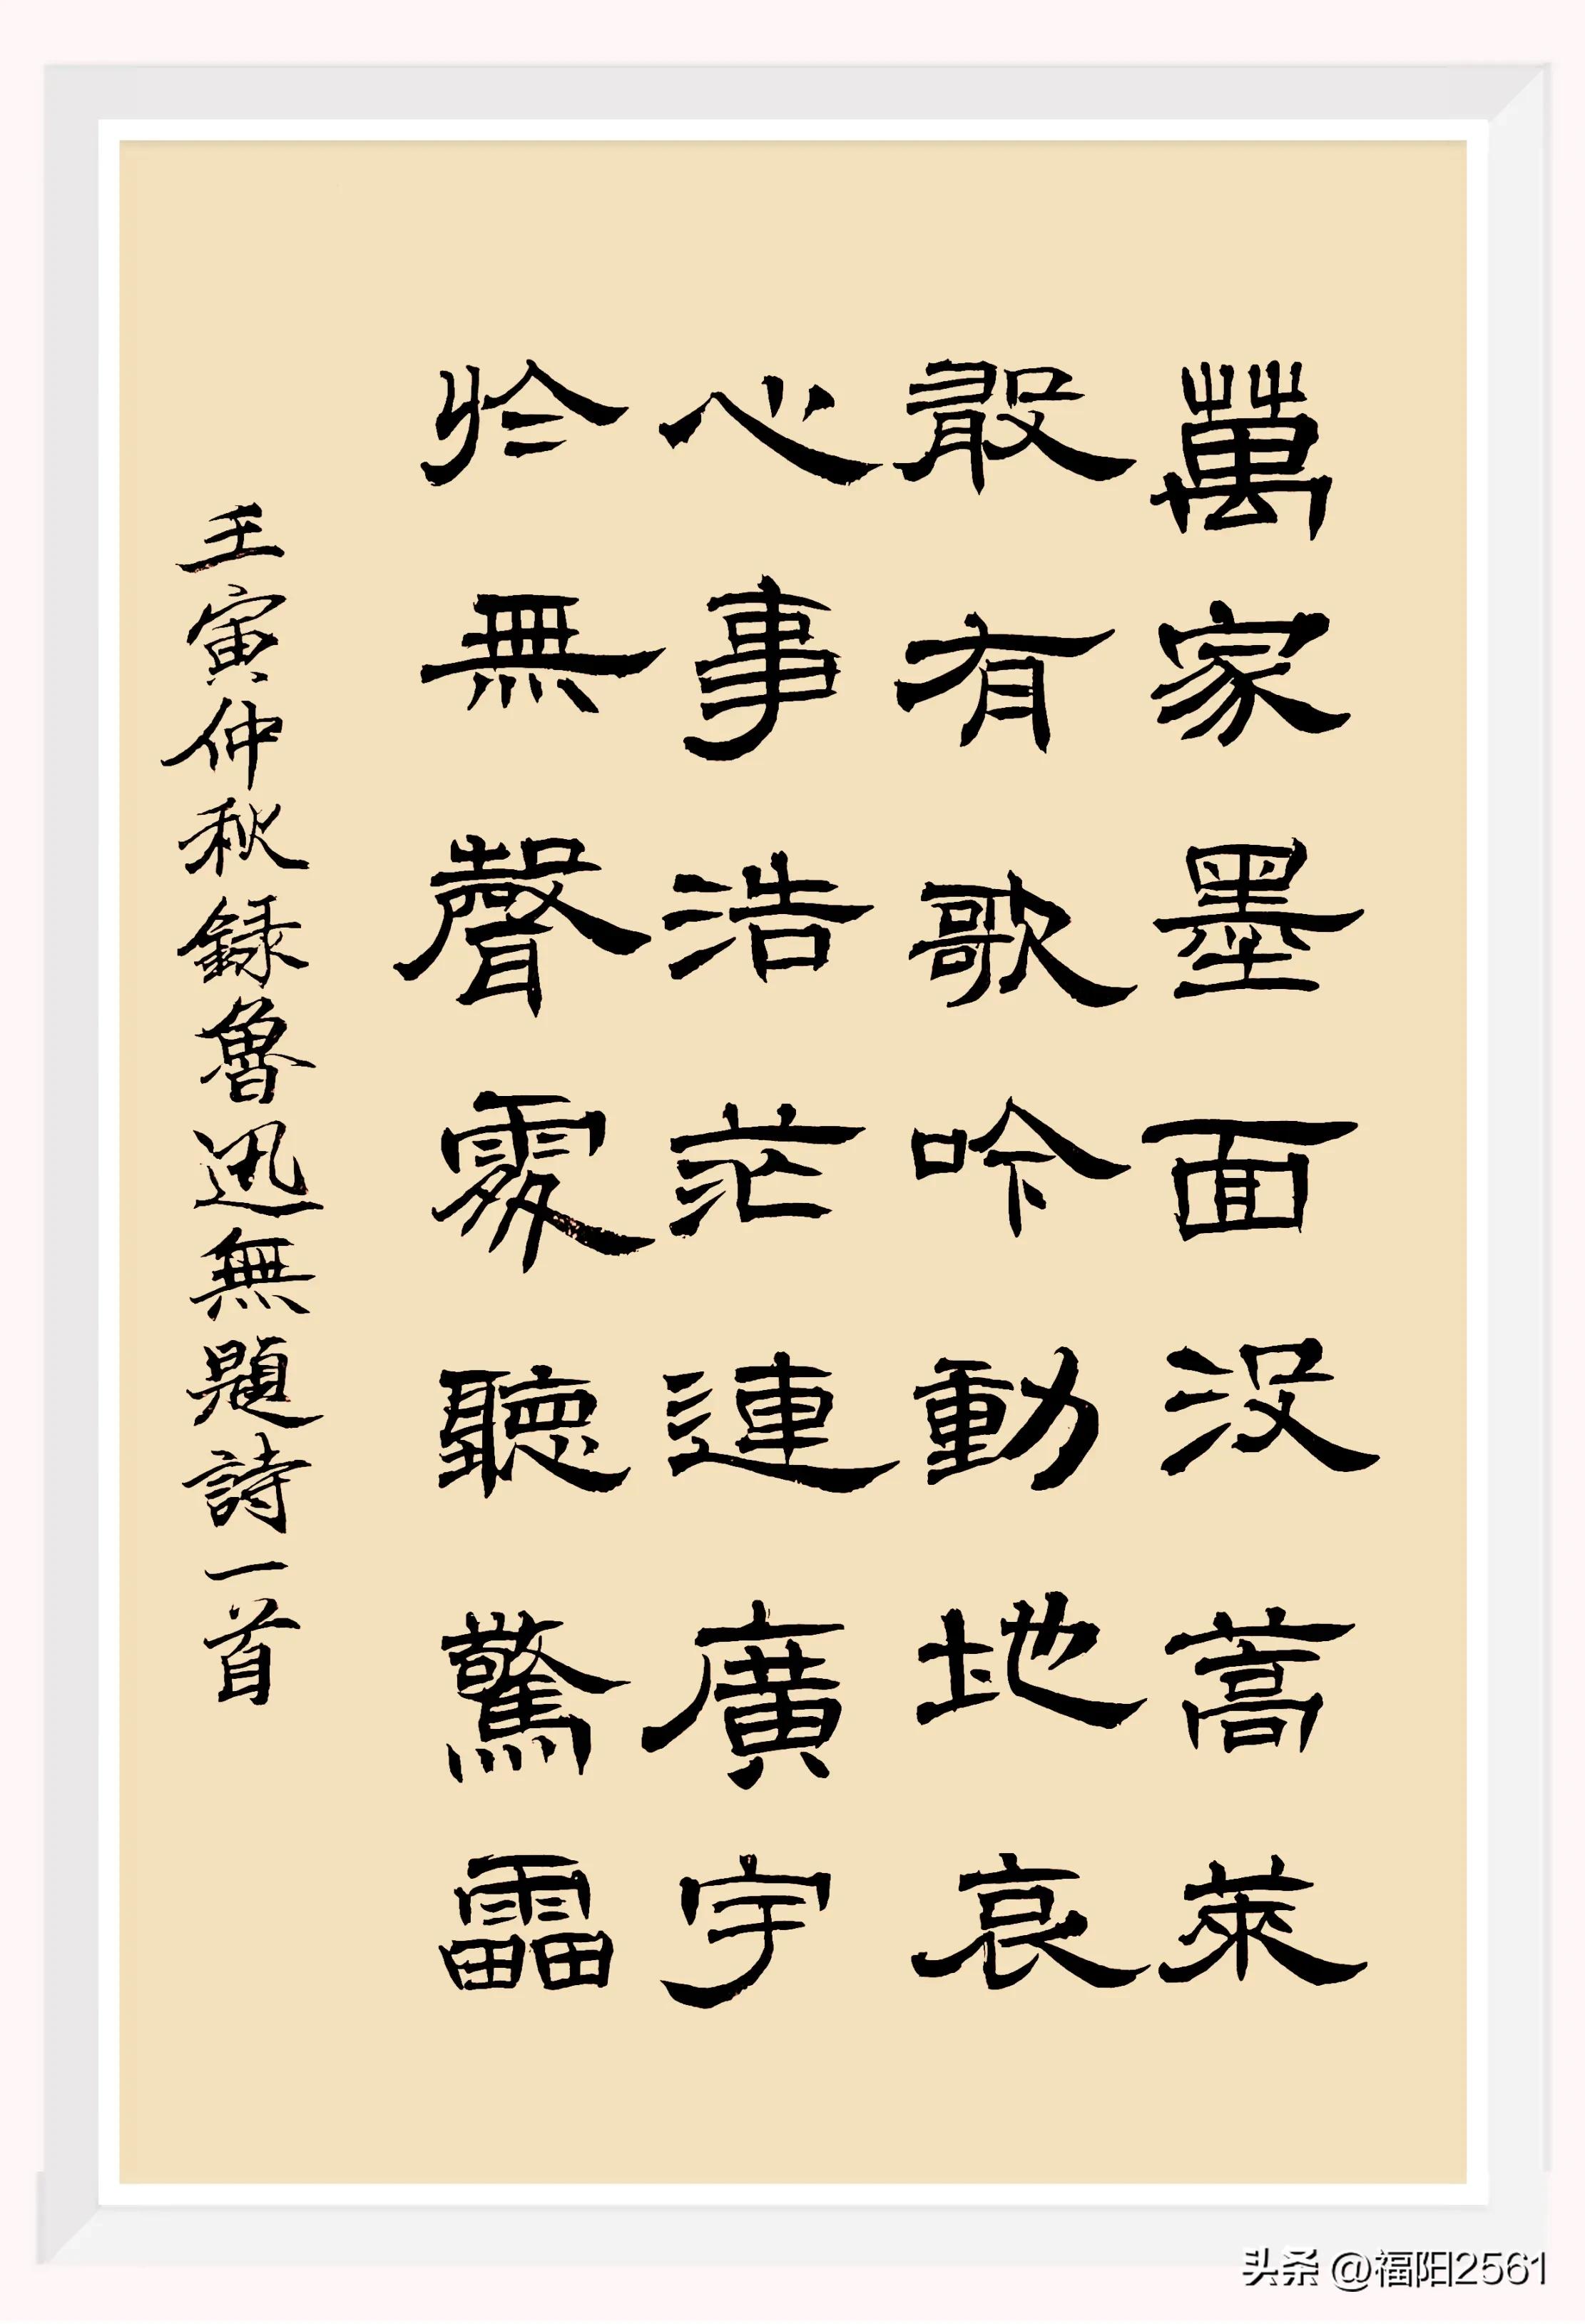 萬家墨面没蒿萊
敢有歌吟動地哀
心事浩茫連廣宇
於無聲處聽驚靁
壬寅仲秋録魯迅無題詩一首
头条 @福阳2561